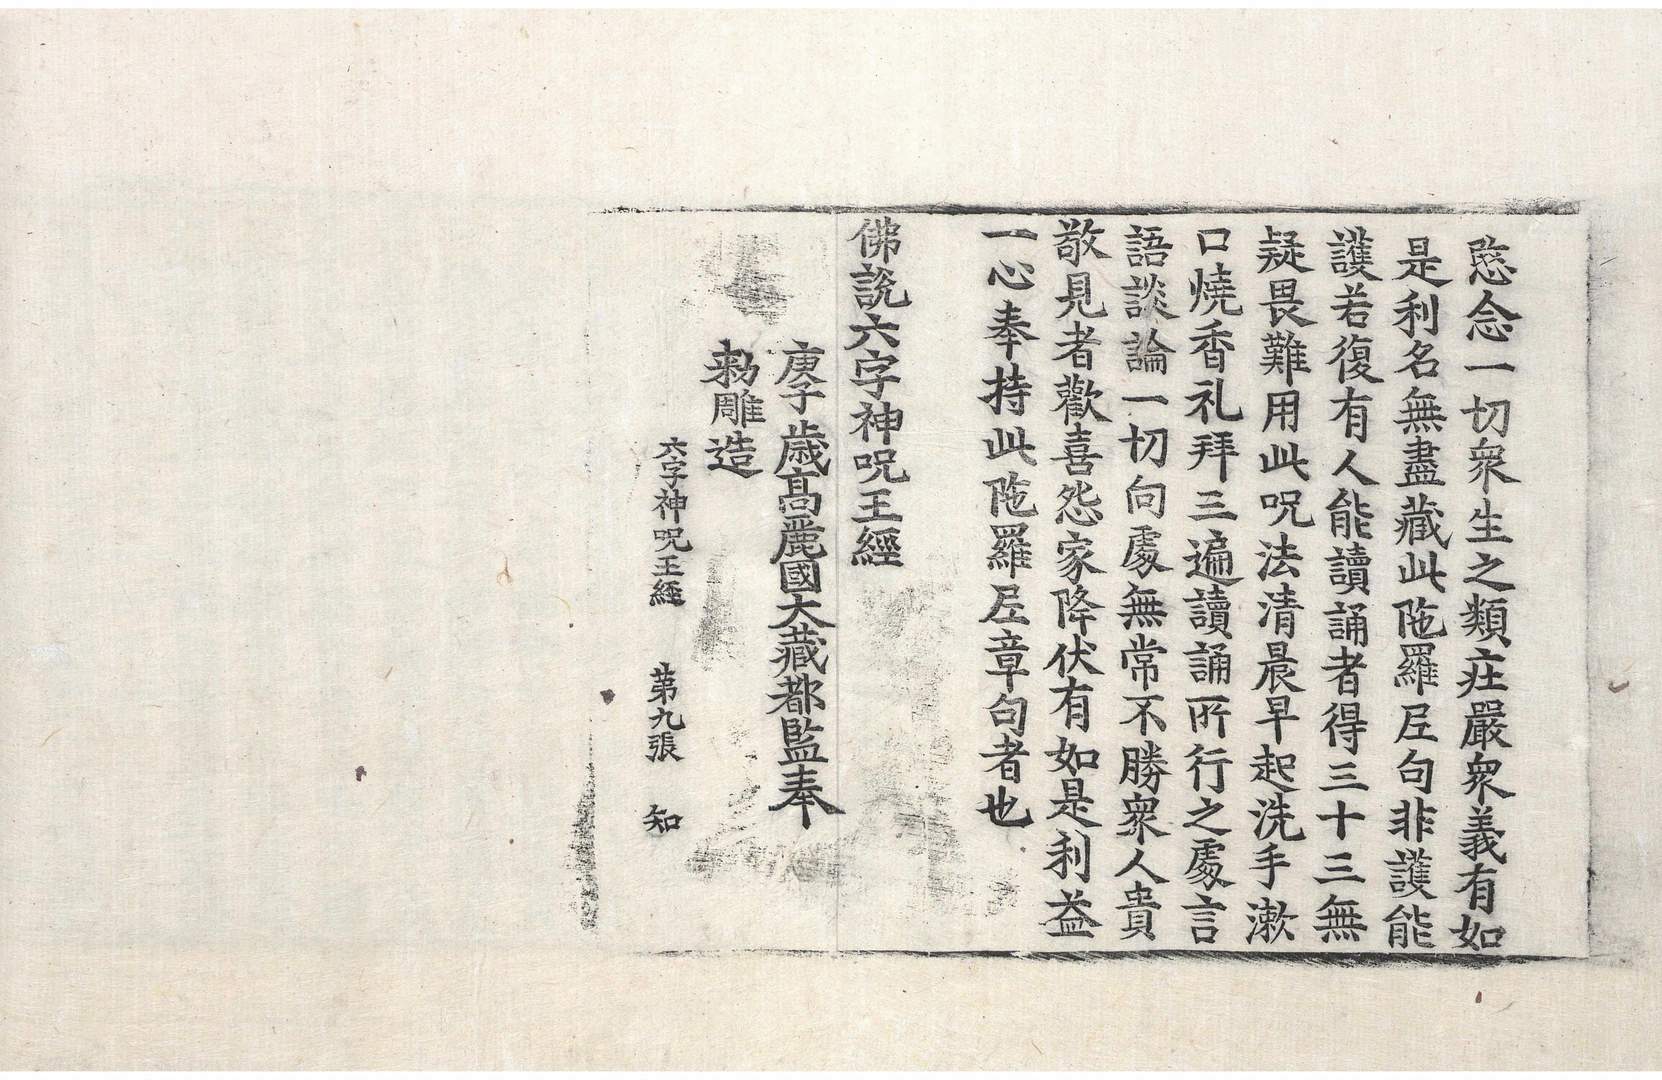 慈念一切衆生之類莊嚴衆義有如
是利名無盡藏此陁羅尼句非護能
護若復有人能讀誦者得三十三無
疑畏難用此呪法清晨早起洗手漱
口燒香礼拜三遍讀誦所行之處言
語談論一切向處無常不勝衆人貴
敬見者歡喜怨家降伏有如是利益
一心奉持此陁羅尼章句者也
佛說六字神呪王經
庚子歲高麗國大藏都監奉
勑雕造
六字神呪王經 第九張 知